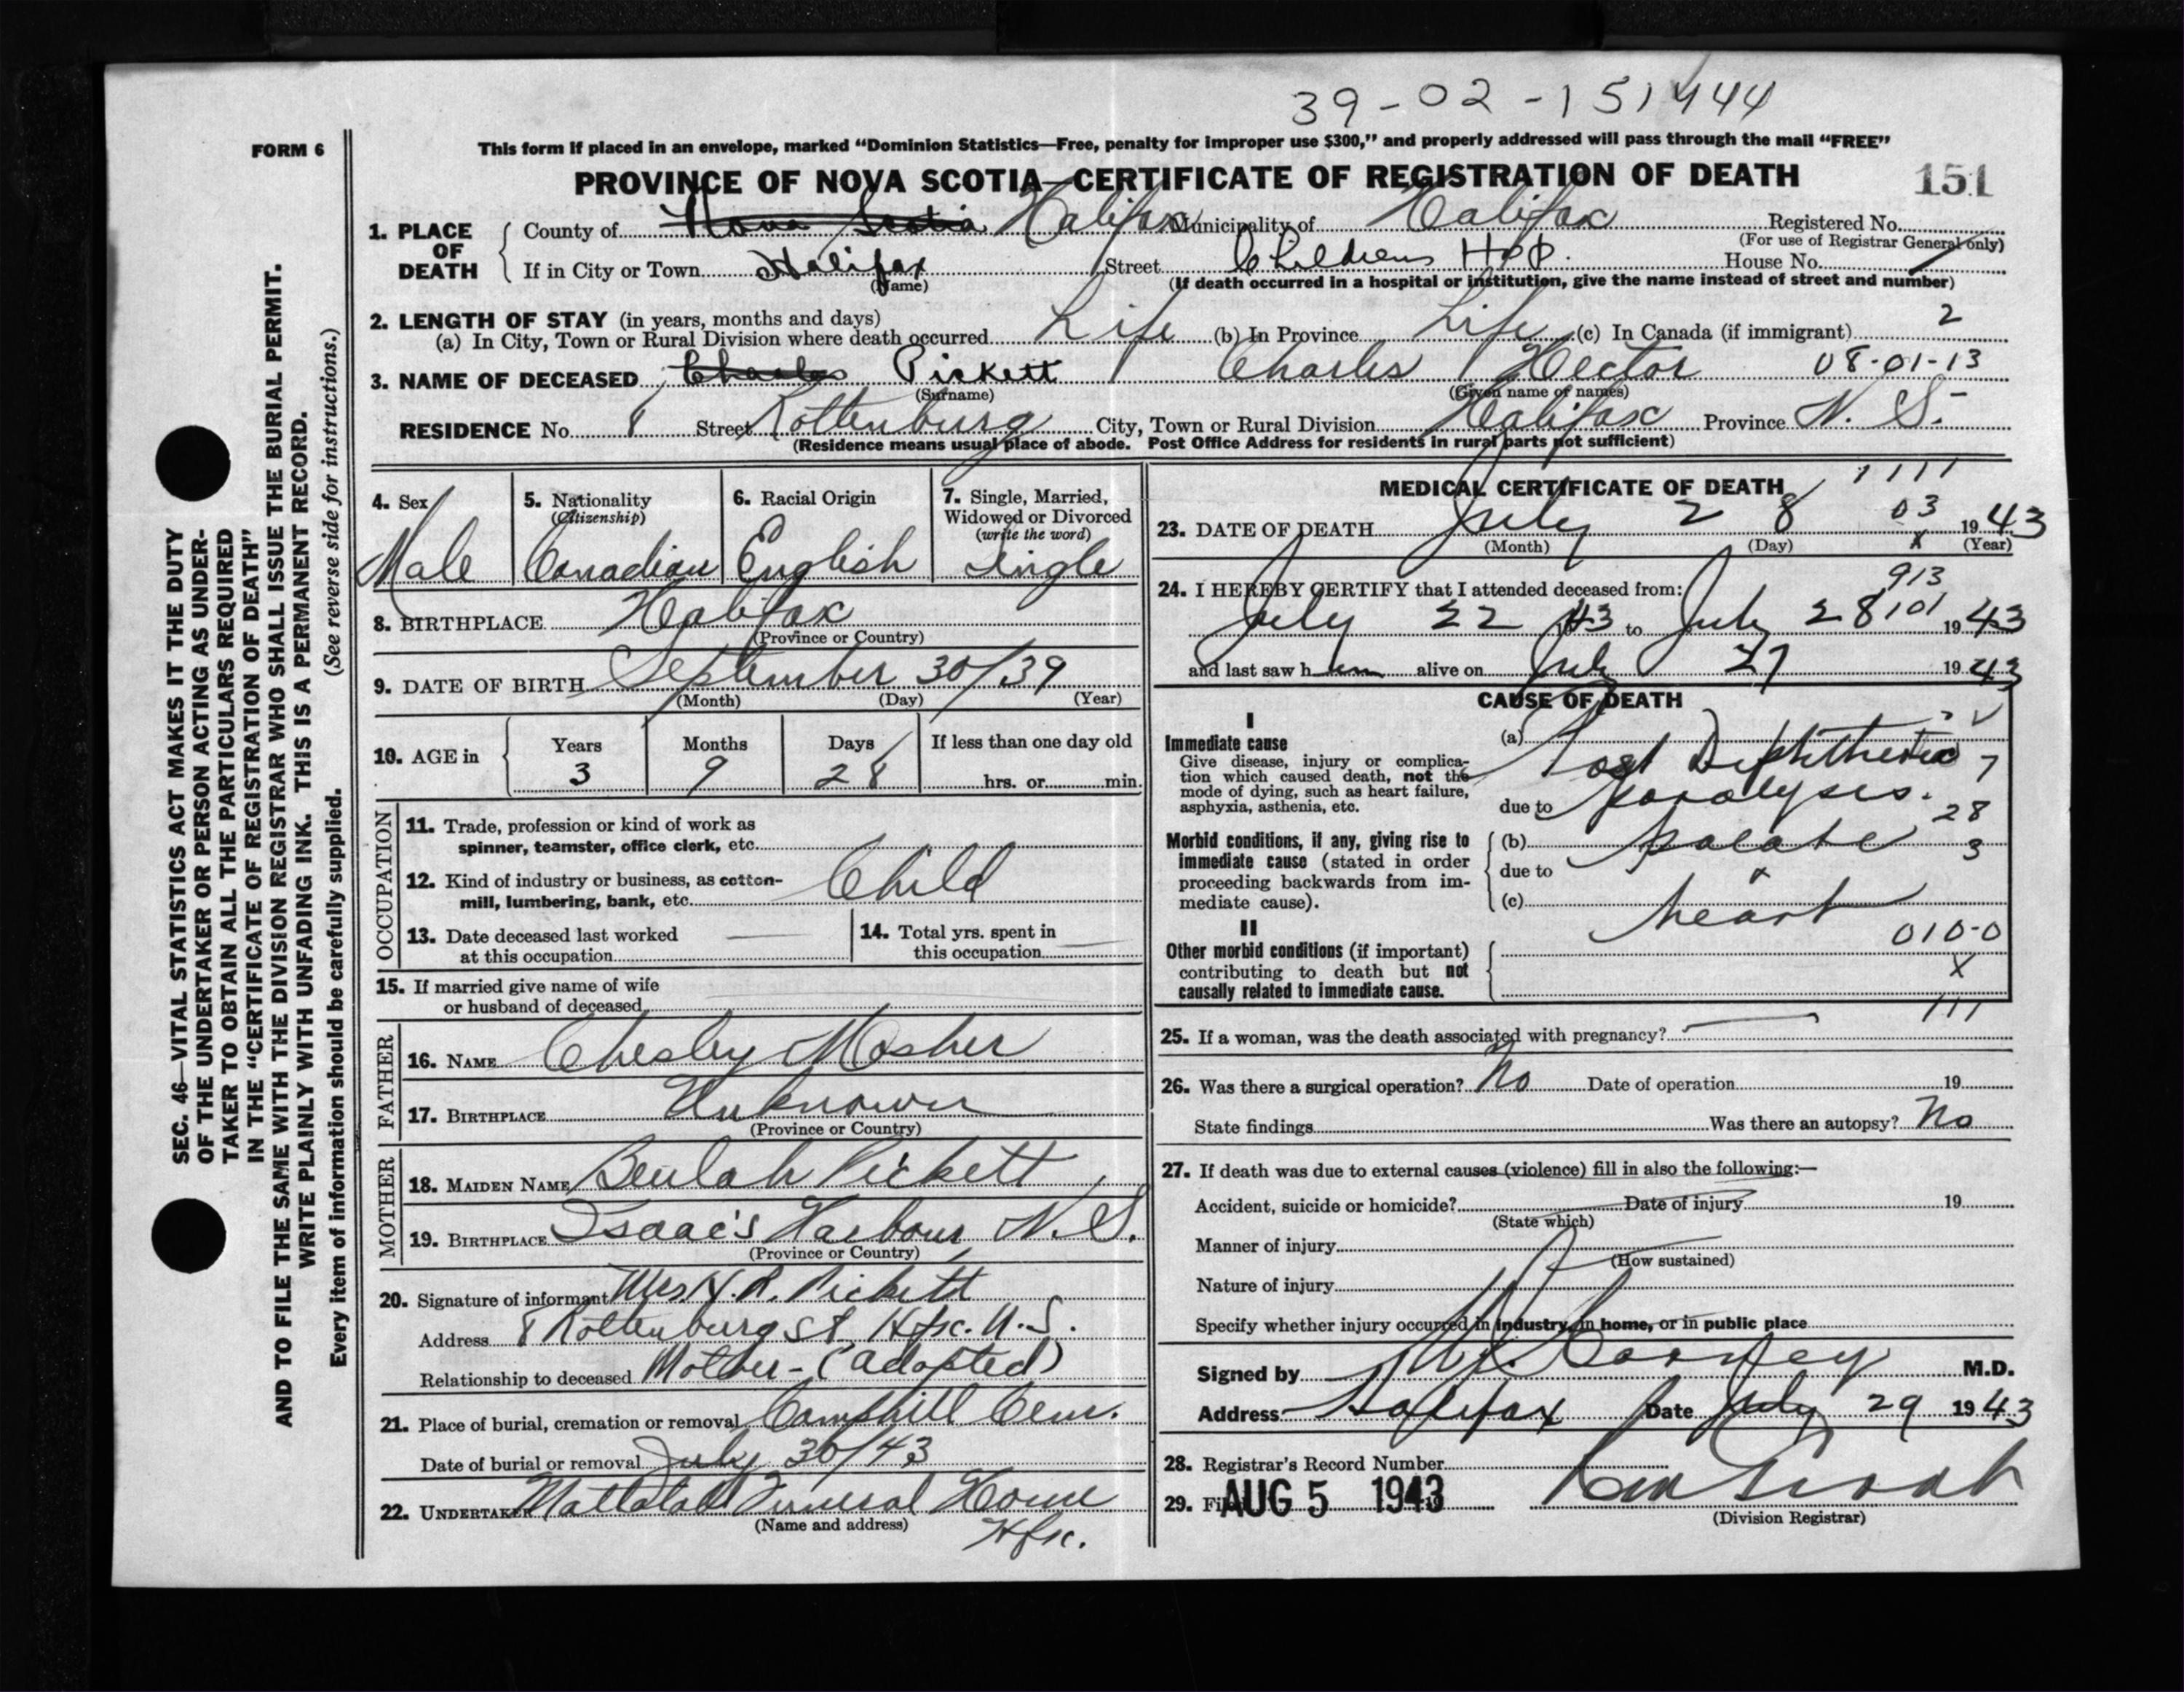 39-02-151444
FORM 6
This form if placed in an envelope, marked "Dominion Statistics—Free, penalty for improper use $300," and properly addressed will pass through the mail "FREE"
PROVINCE OF NOVA SCOTIA—CERTIFICATE OF REGISTRATION OF DEATH
151
1. PLACE OF DEATH
County of Nova Scotia Halifax Municipality of Halifax Registered No.
(For use of Registrar General only)
If in City or Town Halifax Street Childrens Hosp. House No.
(Name)
(If death occurred in a hospital or institution, give the name instead of street and number)
2. LENGTH OF STAY (in years, months and days)
(a) In City, Town or Rural Division where death occurred Life (b) In Province Life (c) In Canada (if immigrant) 2
3. NAME OF DECEASED Charles Pickett Charles Hector 08-01-13
(Surname) (Given name or names)
RESIDENCE No. 8 Street Rottenburg City, Town or Rural Division Halifax Province N. S.
(Residence means usual place of abode. Post Office Address for residents in rural parts not sufficient)
4. Sex
Male
5. Nationality
(Citizenship)
Canadian
6. Racial Origin
English
7. Single, Married,
Widowed or Divorced
(write the word)
Single
8. BIRTHPLACE Halifax
(Province or Country)
9. DATE OF BIRTH September 30/39
(Month) (Day) (Year)
10. AGE in
Years Months Days If less than one day old
3 9 28 hrs. or min.
OCCUPATION
11. Trade, profession or kind of work as
spinner, teamster, office clerk, etc.
12. Kind of industry or business, as cotton-
mill, lumbering, bank, etc. Child
13. Date deceased last worked
at this occupation
14. Total yrs. spent in
this occupation
15. If married give name of wife
or husband of deceased
FATHER
16. NAME Chesley Mosher
17. BIRTHPLACE Unknown
(Province or Country)
MOTHER
18. MAIDEN NAME Beulah Pickett
19. BIRTHPLACE Isaac's Harbour, N.S.
(Province or Country)
20. Signature of informant Mrs. H. R. Pickett
Address 8 Rottenburg St. Hfx. N.S.
Relationship to deceased Mother - (adopted)
21. Place of burial, cremation or removal Camphill Cem.
Date of burial or removal July 30/43
22. UNDERTAKER Mattatall Funeral Home
(Name and address)
Hfx.
MEDICAL CERTIFICATE OF DEATH
1111
23. DATE OF DEATH July 28 03 1943
(Month) (Day) x (Year)
24. I HEREBY CERTIFY that I attended deceased from:
913
July 22 43 to July 28 101 1943
and last saw h im alive on July 27 1943
CAUSE OF DEATH
I
Immediate cause
Give disease, injury or complica-
tion which caused death, not the
mode of dying, such as heart failure,
asphyxia, asthenia, etc.
(a) Post Diphtheria 7
due to paralysis. 28
Morbid conditions, if any, giving rise to
immediate cause (stated in order
proceeding backwards from im-
mediate cause).
(b) palate 3
due to
(c) heart
010-0
II
Other morbid conditions (if important)
contributing to death but not
causally related to immediate cause.
X
111
25. If a woman, was the death associated with pregnancy?
26. Was there a surgical operation? No Date of operation 19
State findings Was there an autopsy? No
27. If death was due to external causes (violence) fill in also the following:—
Accident, suicide or homicide? Date of injury 19
(State which)
Manner of injury
(How sustained)
Nature of injury
Specify whether injury occurred in industry, in home, or in public place
Signed by M.D.
Address Halifax Date July 29 1943
28. Registrar's Record Number
29. Filed AUG 5 1943
(Division Registrar)
SEC. 46—VITAL STATISTICS ACT MAKES IT THE DUTY
OF THE UNDERTAKER OR PERSON ACTING AS UNDER-
TAKER TO OBTAIN ALL THE PARTICULARS REQUIRED
IN THE "CERTIFICATE OF REGISTRATION OF DEATH"
AND TO FILE THE SAME WITH THE DIVISION REGISTRAR WHO SHALL ISSUE THE BURIAL PERMIT.
WRITE PLAINLY WITH UNFADING INK. THIS IS A PERMANENT RECORD.
Every item of information should be carefully supplied. (See reverse side for instructions.)